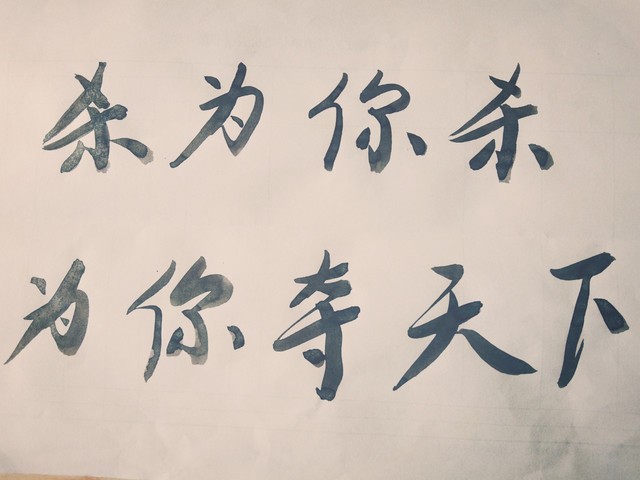 杀为你杀
为你夺天下